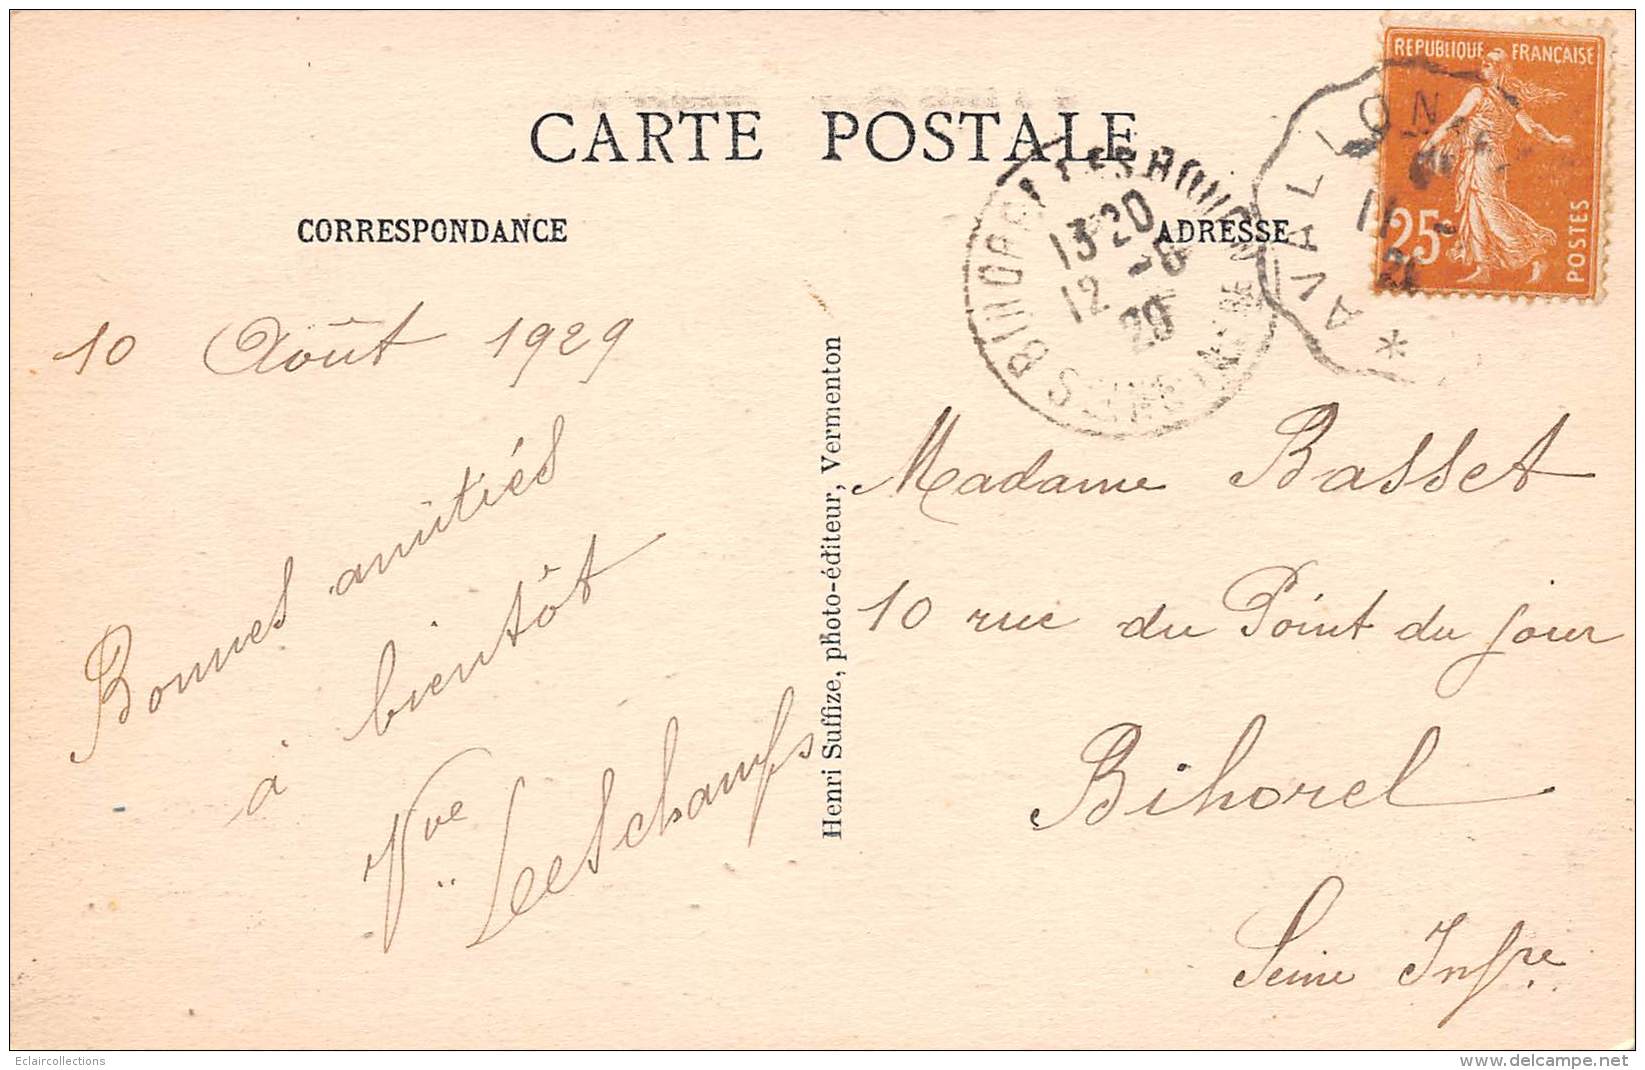 CARTE POSTALE
CORRESPONDANCE
ADRESSE
REPUBLIQUE FRANÇAISE
25c
POSTES
AVALLON
*
11
13 20
12 -8
29
10 Août 1929
Bonnes amitiés
à bientôt
Vve
Henri Suffize, photo-éditeur, Vermenton
Madame Basset
10 rue du Point du jour
Bihorel
Seine Infre
Eclaircollections
www.delcampe.net